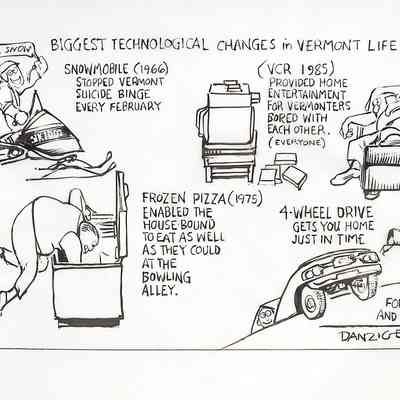 SNOW
BIGGEST TECHNOLOGICAL CHANGES in VERMONT LIFE
SNOWMOBILE (1966)
STOPPED VERMONT
SUICIDE BINGE
EVERY FEBRUARY
(VCR 1985)
PROVIDED HOME
ENTERTAINMENT
FOR VERMONTERS
BORED WITH
EACH OTHER.
(EVERYONE)
FROZEN PIZZA (1975)
ENABLED THE
HOUSE-BOUND
TO EAT AS WELL
AS THEY COULD
AT THE
BOWLING
ALLEY.
4-WHEEL DRIVE
GETS YOU HOME
JUST IN TIME
FO
AND
DANZIGE